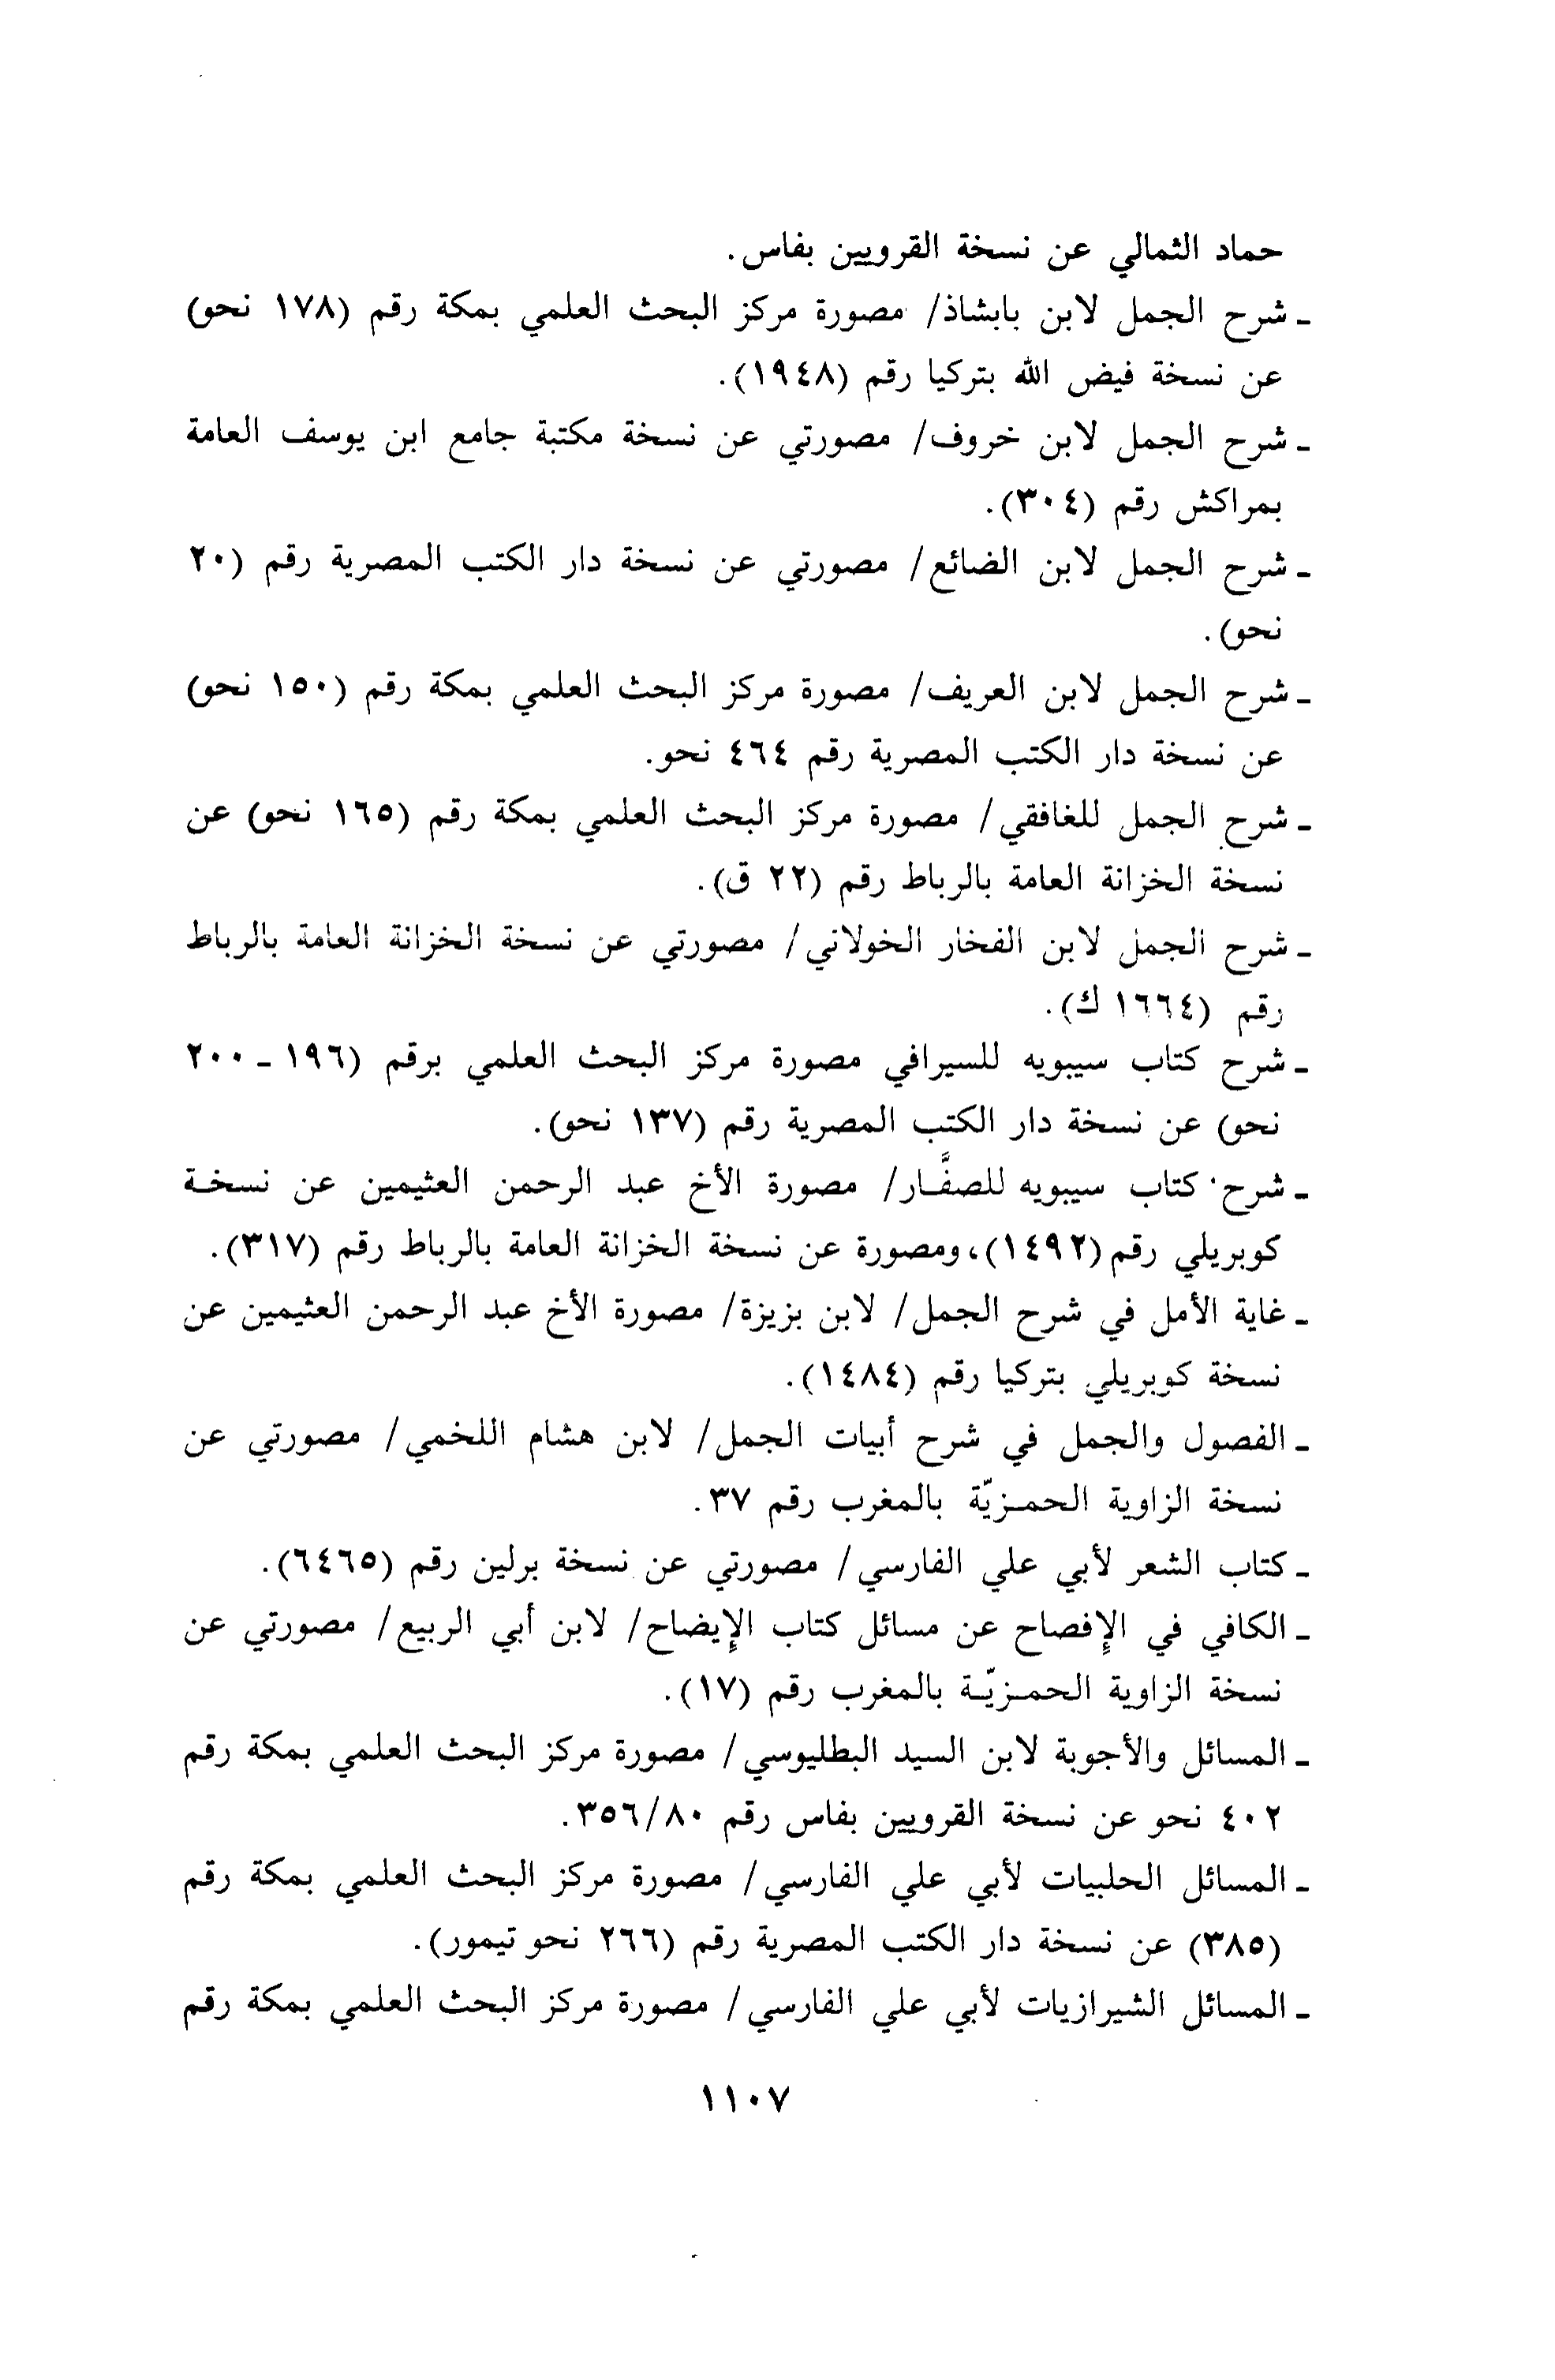 حماد الثمالي عن نسخة القرويين بفاس.
ـ شرح الجمل لابن بابشاذ/ مصورة مركز البحث العلمي بمكة رقم (١٧٨ نحو)
عن نسخة فيض الله بتركيا رقم (١٩٤٨).
ـ شرح الجمل لابن خروف/ مصورتي عن نسخة مكتبة جامع ابن يوسف العامة
بمراكش رقم (٣٠٤).
ـ شرح الجمل لابن الضائع/ مصورتي عن نسخة دار الكتب المصرية رقم (٢٠
نحو).
ـ شرح الجمل لابن العريف/ مصورة مركز البحث العلمي بمكة رقم (١٥٠ نحو)
عن نسخة دار الكتب المصرية رقم ٤٦٤ نحو.
ـ شرح الجمل للغافقي/ مصورة مركز البحث العلمي بمكة رقم (١٦٥ نحو) عن
نسخة الخزانة العامة بالرباط رقم (٢٢ ق).
ـ شرح الجمل لابن الفخار الخولاني/ مصورتي عن نسخة الخزانة العامة بالرباط
رقم (١٦٦٤ ك).
ـ شرح كتاب سيبويه للسيرافي مصورة مركز البحث العلمي برقم (١٩٦ ـ ٢٠٠
نحو) عن نسخة دار الكتب المصرية رقم (١٣٧ نحو).
ـ شرح كتاب سيبويه للصفَّار/ مصورة الأخ عبد الرحمن العثيمين عن نسخة
كوبريلي رقم (١٤٩٢)، ومصورة عن نسخة الخزانة العامة بالرباط رقم (٣١٧).
ـ غاية الأمل في شرح الجمل/ لابن بزيزة/ مصورة الأخ عبد الرحمن العثيمين عن
نسخة كوبريلي بتركيا رقم (١٤٨٤).
ـ الفصول والجمل في شرح أبيات الجمل/ لابن هشام اللخمي/ مصورتي عن
نسخة الزاوية الحمـزيّة بالمغرب رقم ٣٧.
ـ كتاب الشعر لأبي علي الفارسي/ مصورتي عن نسخة برلين رقم (٦٤٦٥).
ـ الكافي في الإفصاح عن مسائل كتاب الإيضاح/ لابن أبي الربيع/ مصورتي عن
نسخة الزاوية الحمـزيّـة بالمغرب رقم (١٧).
ـ المسائل والأجوبة لابن السيد البطليوسي/ مصورة مركز البحث العلمي بمكة رقم
٤٠٢ نحو عن نسخة القرويين بفاس رقم ٣٥٦/٨٠.
ـ المسائل الحلبيات لأبي علي الفارسي/ مصورة مركز البحث العلمي بمكة رقم
(٣٨٥) عن نسخة دار الكتب المصرية رقم (٢٦٦ نحو تيمور).
ـ المسائل الشيرازيات لأبي علي الفارسي/ مصورة مركز البحث العلمي بمكة رقم
١١٠٧